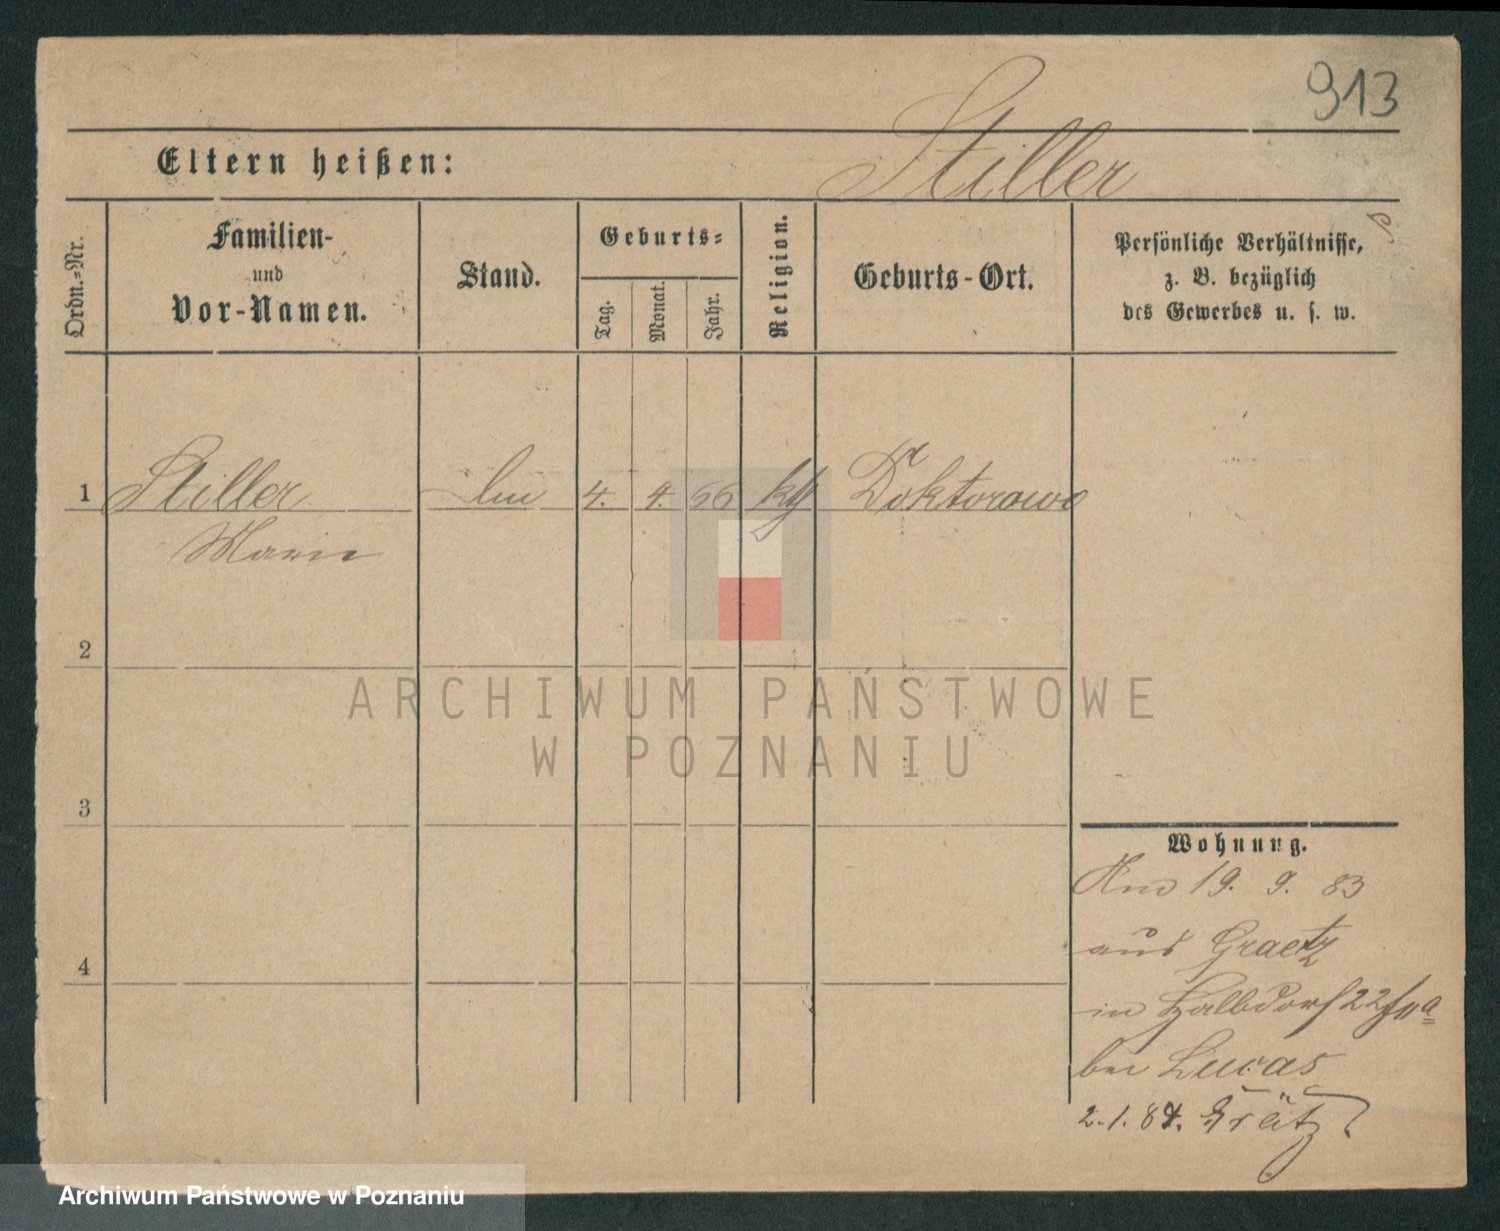 913
Eltern heißen: Stiller
Ordn.-Nr.
Familien-
und
Vor-Namen.
Stand.
Geburts-
Tag.
Monat.
Jahr.
Religion.
Geburts-Ort.
Persönliche Verhältnisse,
z. B. bezüglich
des Gewerbes u. s. w.
1 Stiller 4. 4. 66 Doktorowo
Marie
2
3
4
Wohnung.
19. 9. 83
aus Graetz
in Halbdorf 22
bei Lucas
2.1.84. Grätz
ARCHIWUM PAŃSTWOWE
W POZNANIU
Archiwum Państwowe w Poznaniu